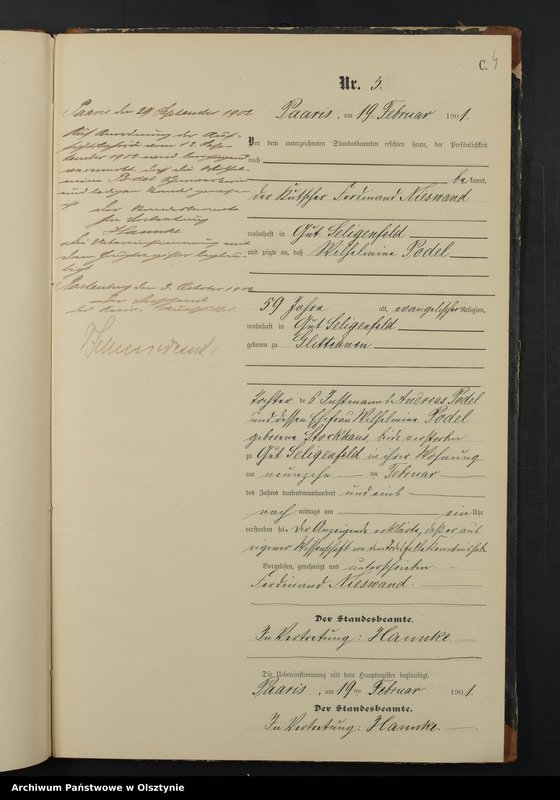 C. 4
Nr. 3.
Paaris, am 19. Februar 1901.
Vor dem unterzeichneten Standesbeamten erschien heute, der Persönlichkeit
nach
be kannt,
der Kutscher Ferdinand Nieswand
wohnhaft in Gut Seligenfeld
und zeigte an, daß Wilhelmine Podel
59 Jahre alt, evangelischer Religion,
wohnhaft in Gut Seligenfeld
geboren zu Glittehnen
Tochter des Instmanns Andreas Podel
und dessen Ehefrau Wilhelmine Podel
geborene Stockhaus, beide verstorben
zu Gut Seligenfeld in ihrer Wohnung
am neunzehn ten Februar
des Jahres tausendneunhundert und eins
nach mittags um ein Uhr
verstorben sei. Der Anzeigende erklärte, daß er aus
eigener Wissenschaft von dem Todesfalle Kenntnis habe.
Vorgelesen, genehmigt und unterschrieben.
Ferdinand Nieswand.
Der Standesbeamte.
In Vertretung: Hannke
Die Uebereinstimmung mit dem Hauptregister beglaubigt.
Paaris, am 19 ten Februar 1901.
Der Standesbeamte.
In Vertretung: Hannke.
Paaris den 29 September 1902
Auf Anordnung der Auf-
vermerkt, daß die Wilhel-
mine Podel
und ledigen Standes gewesen
ist.
der Standesbeamte
In Vertretung
Hannke
die Uebereinstimmung mit
dem Hauptregister beglau-
bigt
den 3. October 1902
Archiwum Państwowe w Olsztynie